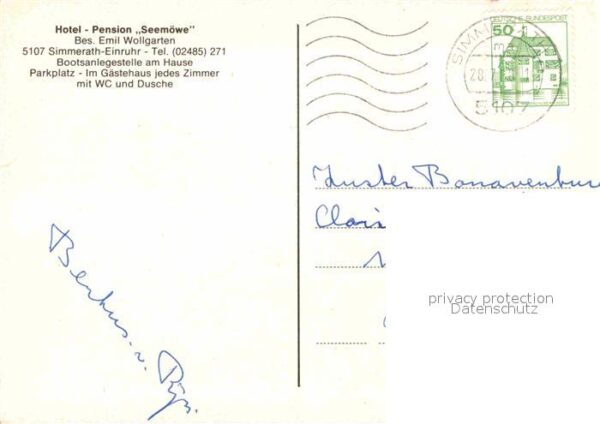 Hotel - Pension „Seemöwe"
Bes. Emil Wollgarten
5107 Simmerath-Einruhr - Tel. (02485) 271
Bootsanlegestelle am Hause
Parkplatz - Im Gästehaus jedes Zimmer
mit WC und Dusche
DEUTSCHE BUNDESPOST
50
SIMM
28.7
5107
Bonaventur
privacy protection
Datenschutz